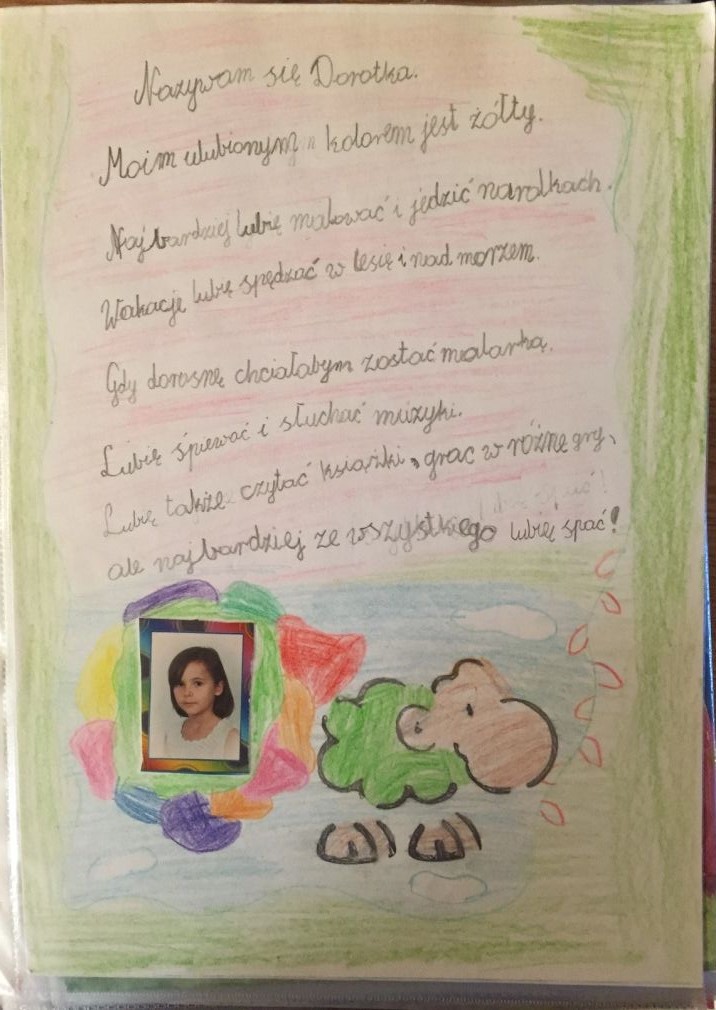 Nazywam się Dorotka.
Moim ulubionym kolorem jest żółty.
Najbardziej lubię malować i jędzić narolkach.
Wakacje lubię spędzać w lesie i nad morzem.
Gdy dorosnę chciałabym zostać malarką.
Lubię śpiewać i słuchać muzyki.
Lubię także czytać książki, grac w różne gry,
ale najbardziej ze wszystkiego lubię spać!